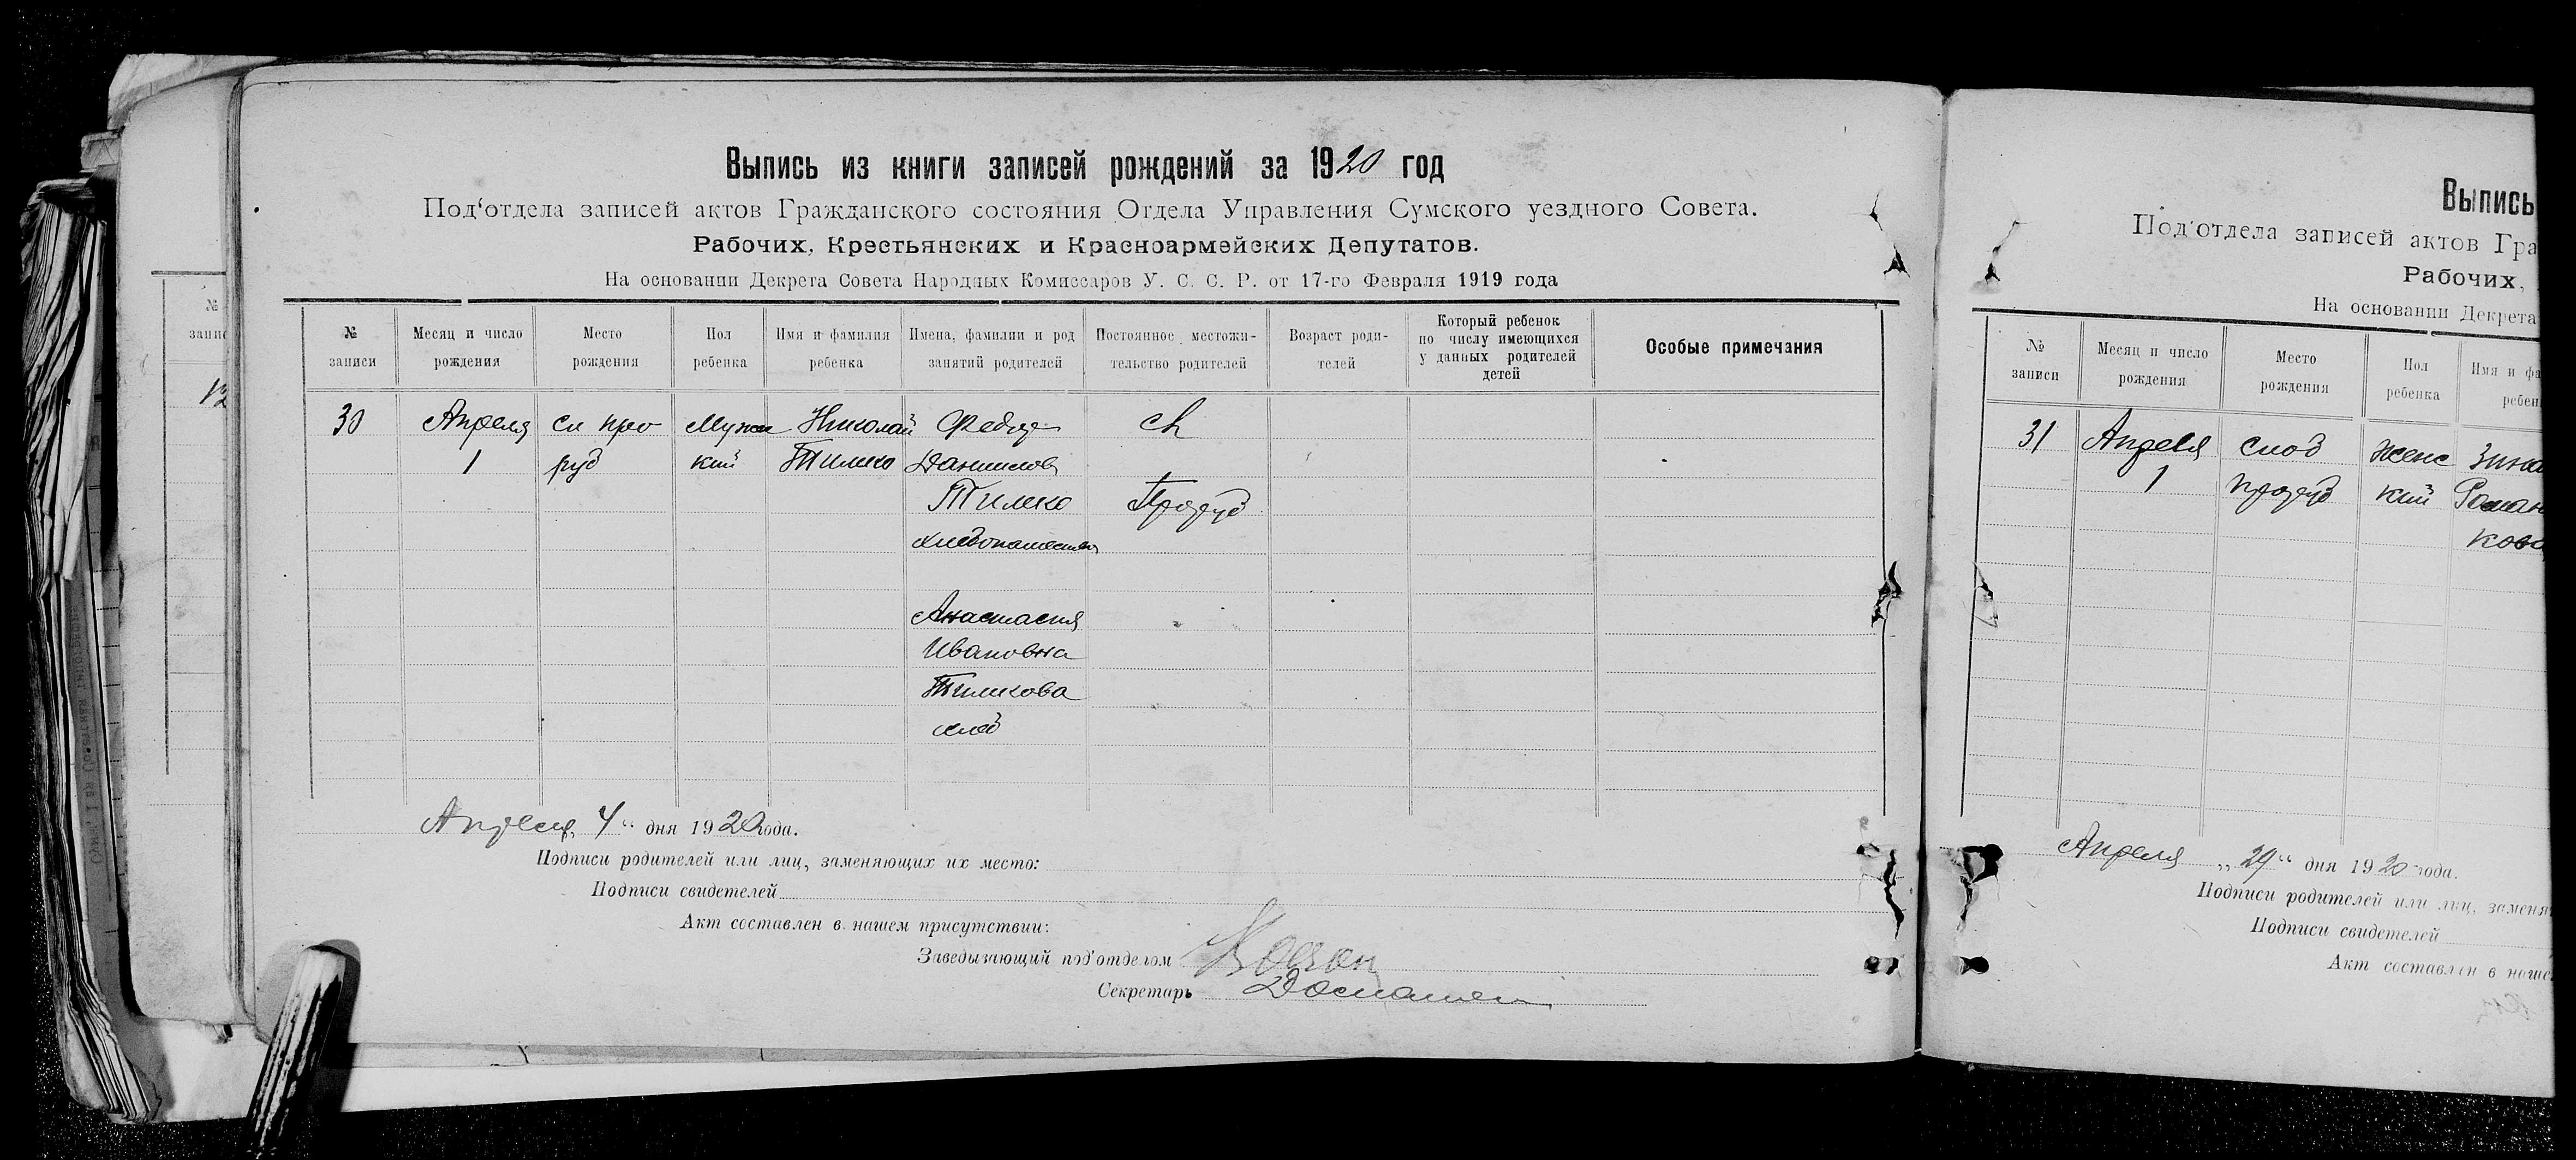 Выпись из книги записей рождений за 1920 год
Под‘отдела записей актов Гражданского состояния Отдела Управления Сумского уездного Совета.
Рабочих, Крестьянских и Красноармейских Депутатов.
На основании Декрета Совета Народных Комиссаров У. С. С. Р. от 17-го Февраля 1919 года
№ записи
Месяц и число рождения
Место рождения
Пол ребенка
Имя и фамилия ребенка
Имена, фамилии и род занятий родителей
Постоянное местожи-тельство родителей
Возраст роди-телей
Который ребенок по числу имеющихся у данных родителей детей
Особые примечания
30
Апреля
1
сл про
руд
Мужс
кий
Николай
Тимко
Федор
Данилов
Тимко
хлебопашество
Анастасия
Ивановна
Тимкова
сл
Проруб
Апреля 4“ дня 1920 года.
Подписи родителей или лиц, заменяющих их место:
Подписи свидетелей
Акт составлен в нашем присутствии:
Заведывающий под‘отделом
Секретарь
Выпись
Под‘отдела записей актов Гра
Рабочих,
На основании Декрета
№ записи
Месяц и число рождения
Место рождения
Пол ребенка
Имя и фа
ребен
31
Апреля
1
слод
женс
кий
Зина
Роман
Кова
Апреля „29“ дня 1920 года.
Подписи родителей или лиц, заменя
Подписи свидетелей
Акт составлен в наше
№
запис
12